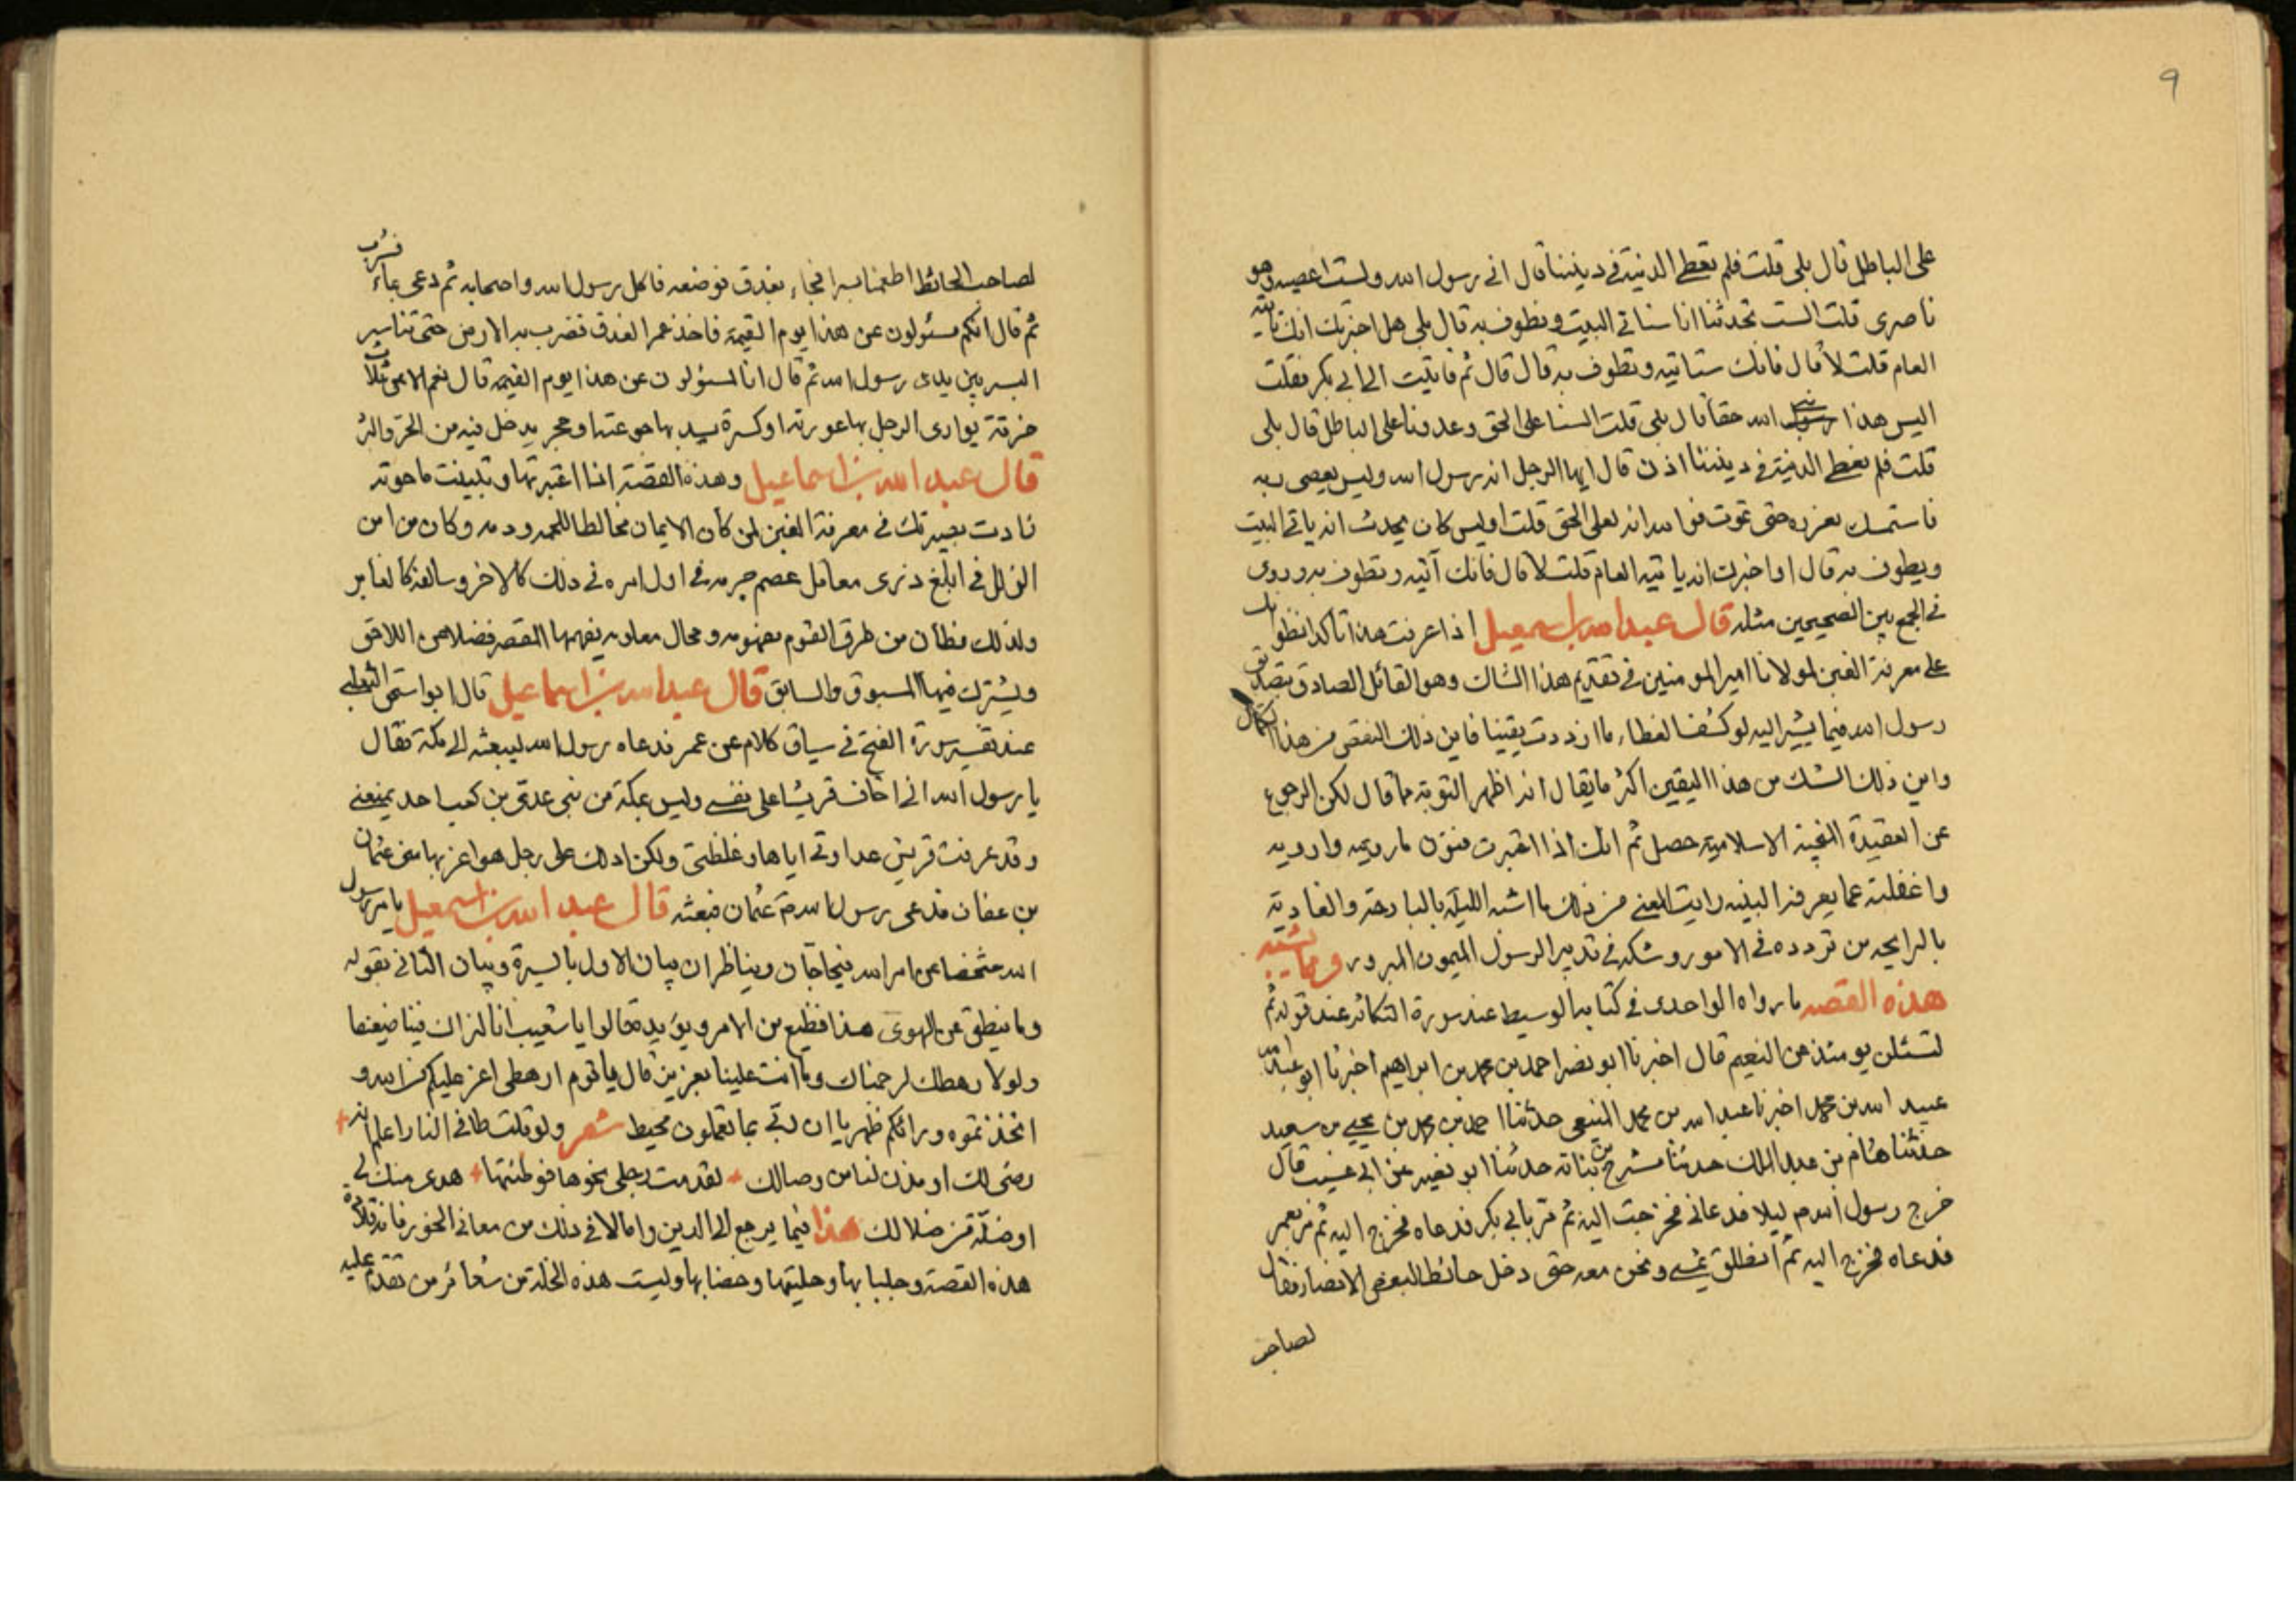 ٩
على الباطل قال بلى قلت فلم نعطي الدنية في ديننا قال اني رسول الله ولست اعصيه وهو
ناصري قلت الست تحدثنا انا سناتي البيت ونطوف به قال بلى هل اخبرتك انك تاتيه
العام قلت لا قال فانك ستاتيه وتطوف به قال قال ثم فاتيت الى ابي بكر فقلت
اليس هذا نبي الله حقا قال بلى قلت السنا على الحق وعدونا على الباطل قال بلى
قلت فلم نعطي الدنية في ديننا اذن قال ايها الرجل انه رسول الله وليس يعصي ربه
فاستمسك بغرزه حتى تموت فوالله انه لعلى الحق قلت اوليس كان يحدث انه ياتي البيت
ويطوف به قال او اخبرت انه ياتيه العام قلت لا قال فانك آتيه وتطوف به وروى
في الجمع بين الصحيحين مثله قال عبد الله بن اسمعيل اذا عرفت هذا تاكد انظر بك
على معرفة الغبن لمولانا امير المومنين في تقديم هذا الشاك وهو القائل الصادق بتصديق
رسول الله فيما يشير اليه لو كشف الغطاء ما ازددت يقينا فاين ذلك النقص من هذا الكمال
واين ذلك الشك من هذا اليقين اكثر ما يقال انه اظهر التوبة مما قال لكن الرجوع
عن العقيدة الاسلامية حصل ثم انك اذا اعتبرت فنون ما رويه وارويه
واغفلته عما يعرفه النبيه رايت المعنى من ذلك ما اشبه الليلة بالبارحة والغادية
بالرايحه من تردده في الامور وشكه في تدبير الرسول الميمون المبرور ومما يشبه
هذه القصه ما رواه الواحدي في كتابه الوسيط عند سورة التكاثر عند قوله ثم
لتسئلن يومئذ عن النعيم قال اخبرنا ابو نصر احمد بن محمد بن ابراهيم اخبرنا ابو عبد الله
عبيد الله بن محمد اخبرنا عبد الله بن محمد المنيعي حدثنا احمد بن محمد بن يحيى بن سعيد
حدثنا هشام بن عبد الملك حدثنا حشرج بن نباته حدثنا ابو نصير عن ابي عسيب قال
خرج رسول الله ص ليلا فدعاني فخرجت اليه ثم مر بابي بكر فدعاه فخرج اليه ثم مر بعمر
فدعاه فخرج اليه ثم انطلق يمشي ونحن معه حتى دخل حائطا لبعض الانصار فقال
لصاحب
لصاحب الحائط اطعمنا بسرا فجاء بعذق فوضعه فاكل رسول الله واصحابه ثم دعى بماء فشرب
ثم قال انكم مسئولون عن هذا يوم القيمة فاخذ عمر العذق فضرب به الارض حتى تناثر
البسر بين يدي رسول الله ثم قال انا لمسئولون عن هذا يوم القيمه قال نعم الا من ثلاث
خرقة يواري الرجل بها عورته او كسرة يسد بها جوعته او حجر يدخل فيه من الحر والبر
قال عبد الله بن اسماعيل وهذه القصة اذا اعتبرتها وتبينت ما حوته
زادت بصيرتك في معرفة الغبن لمن كان الايمان مخالطا للحمه ودمه وكان من امن
الزلل في ابلغ ذرى معاقل عصم جرمه في اول امره في ذلك كالاخر وسالفه كالغابر
ولذلك مظان من طرق القوم مفهومه ومحال معلومه يفهمها المقصر فضلا عن اللاحق
ويشترك فيها المسبوق والسابق قال عبد الله بن اسماعيل قال ابو اسحق الثعلبي
عند تفسير سورة الفتح في سياق كلام عن عمر فدعاه رسول الله ليبعثه الى مكة فقال
يا رسول الله اني اخاف قريشا على نفسي وليس بمكة من بني عدي بن كعب احد يمنعني
وقد عرفت قريش عداوتي اياها وغلظتي ولكن ادلك على رجل هو اعز بها مني عثمان
بن عفان فدعى رسول الله ص عثمان فبعثه قال عبد الله بن اسمعيل يا من رسول
الله شخصا عن امر الله فيحاجان ويناظران ببيان الاول بالسيرة وبيان الثاني بقوله
وما ينطق عن الهوى هذا فظيع من الامر ويؤيده قالوا يا شعيب انا لنراك فينا ضعيفا
ولولا رهطك لرجمناك وما انت علينا بعزيز قال يا قوم ارهطي اعز عليكم من الله و
اتخذتموه ورائكم ظهريا ان ربي بما تعملون محيط شعر ولو قلت طا في النار اعلم انه
رضى لك او مدن لنا من وصالك لقدمت رجلي نحوها فوطئتها هدى منك لي
او ضلة من ضلالك هذا فيما يرجع الى الدين وامالا في ذلك من معاني الخور فانه قلادة
هذه القصة وجلبابها وحليتها وخضابها وليست هذه الخلة من شعائر من تقدم عليه